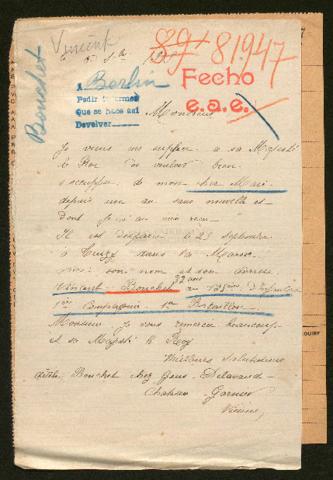 Bouchet
Vincent
89 / 81947
A Berlin
Pedir informes
Que se hace así
Devolver
Fecho
e.a.e.
Monsieur
Je viens me supplier a sa Majesté
le Roi de vouloir bien
s'occuper de mon cher Mari
depuis un an sans nouvelle et
dont je n'ai rien reçu
Il est disparu le 25 Septembre
a dans la Marne
son nom et son adresse
Vincent Bouchet 32 ans au 125me d'Infanterie
Compagnie Bataillon
Monsieur Je vous remercie beaucoup
et sa Majesté le Roy
Meilleurs Salutations
Bouchet chez Delavaud
Chateau Garnier
Vienne